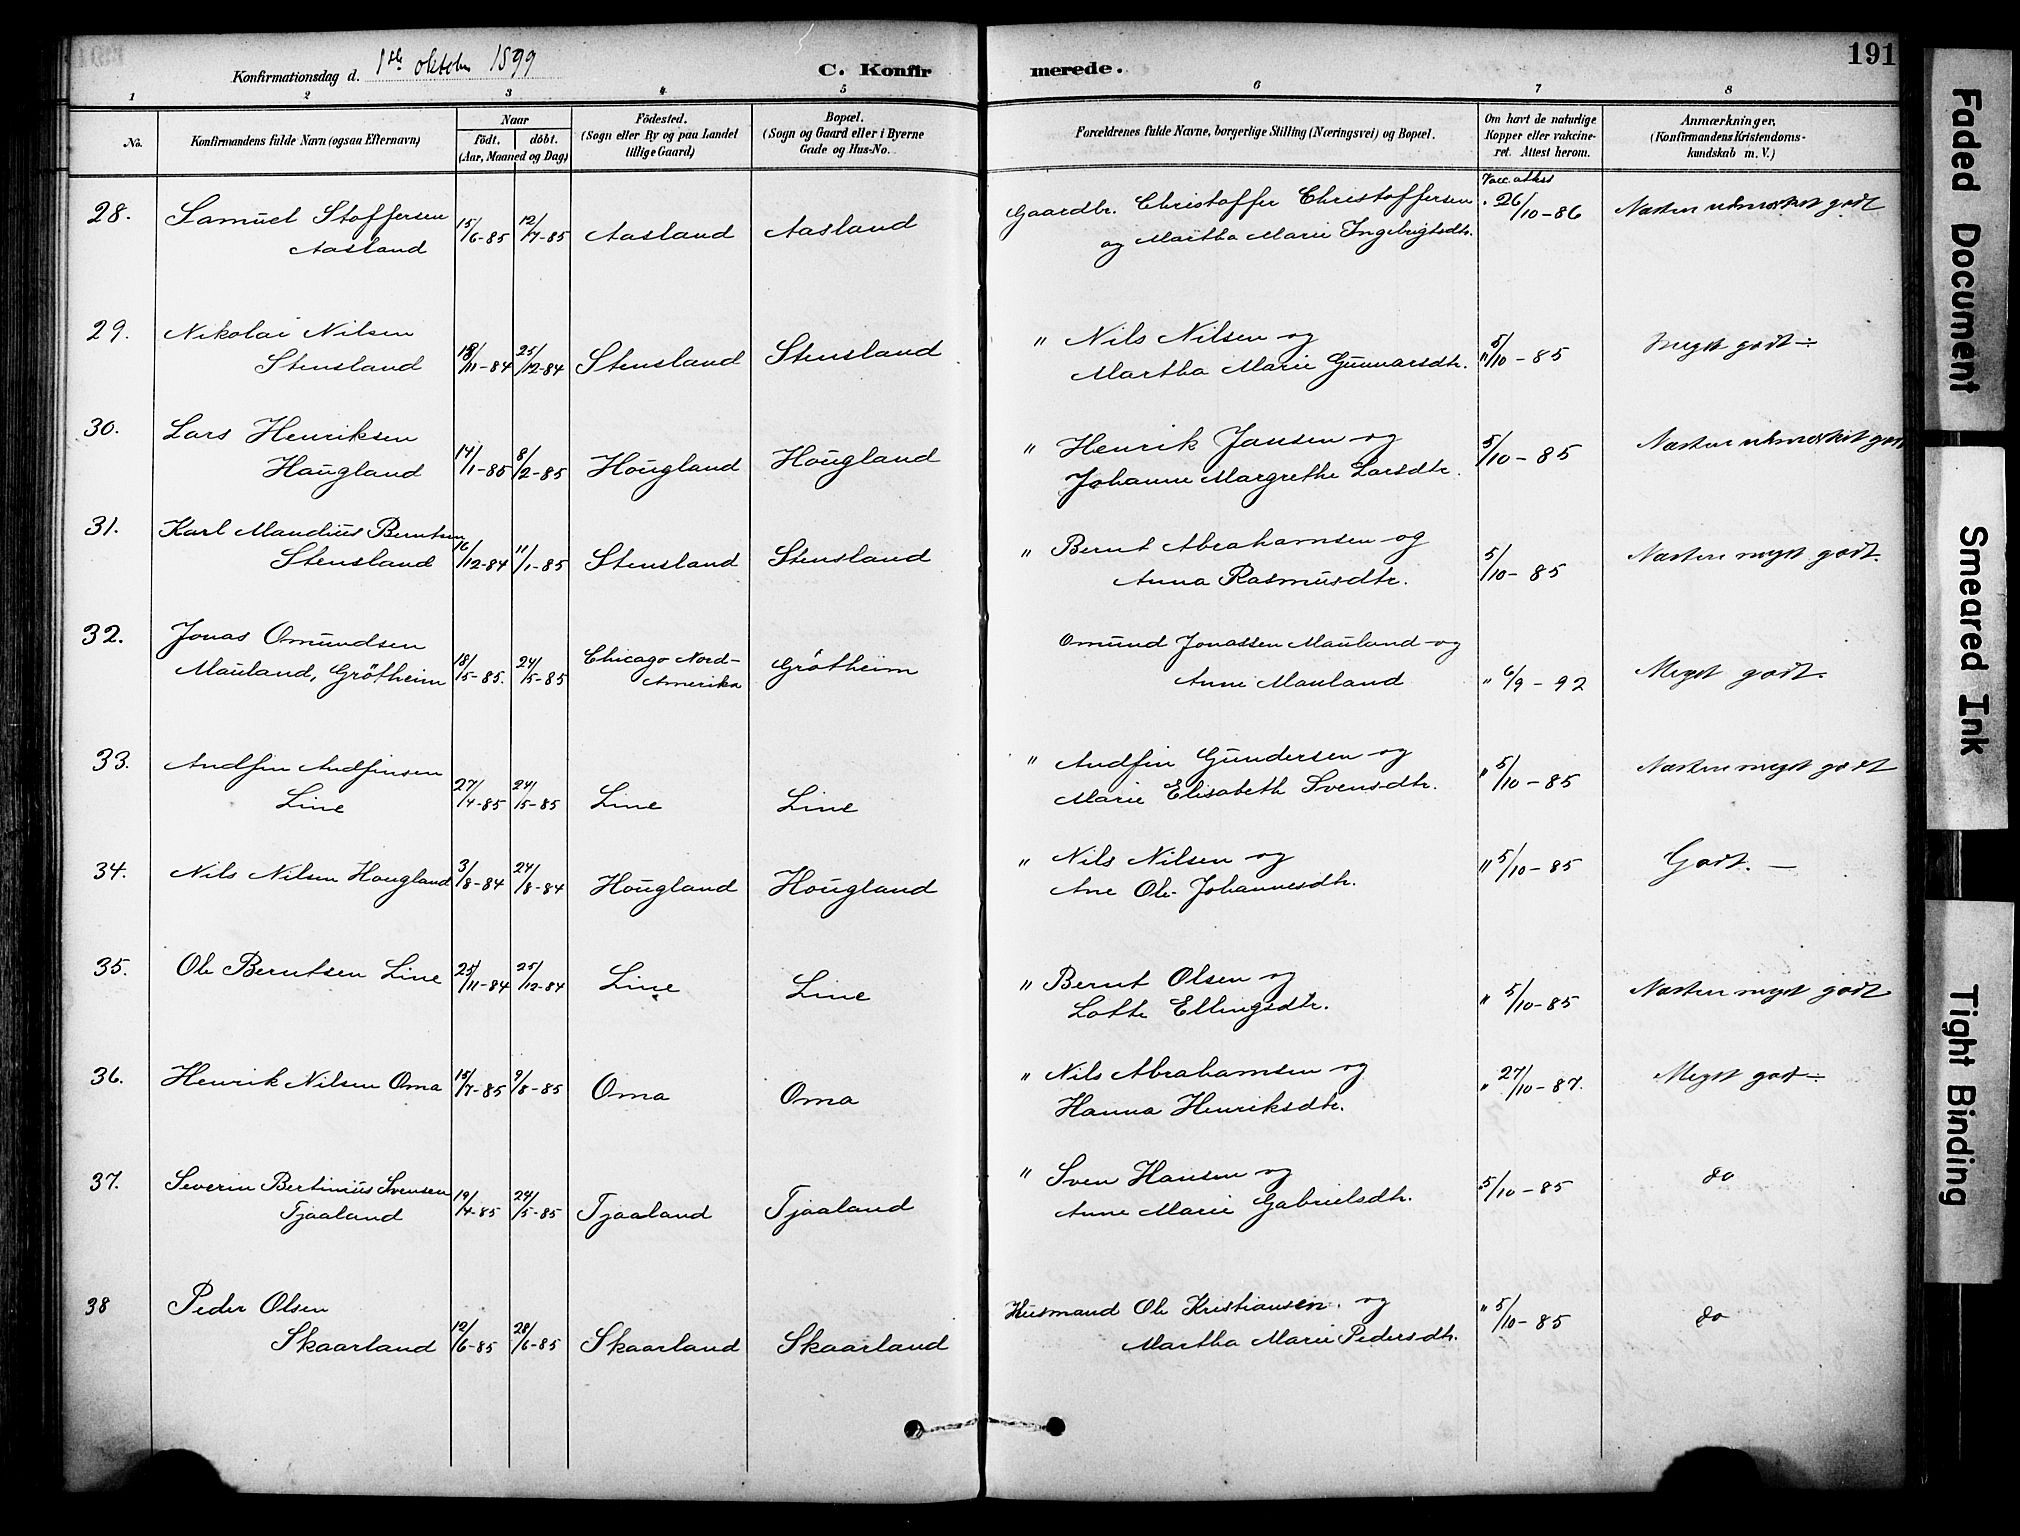 Konfirmationsdag d. 1ste oktober 1899
C. Konfir merede.
191
1 2 3 4 5 6 7 8
No.
Konfirmandens fulde Navn (ogsaa Efternavn)
Naar
födt. döbt.
(Aar, Maaned og Dag)
Födested.
(Sogn eller By og paa Landet
tillige Gaard)
Bopæl.
(Sogn og Gaard eller i Byerne
Gade og Hus-No.
Forældrenes fulde Navne, borgerlige Stilling (Næringsvei) og Bopæl.
Om havt de naturlige
Kopper eller vakcine-
ret. Attest herom.
Anmærkninger,
(Konfirmandens Kristendoms-
kundskab m. V.)
28. Samuel Stoffersen
Aasland
15/6-85 12/7-85 Aasland Aasland
Gaardbr. Christoffer Christoffersen
og Martha Marie Ingebrigtsdtr.
Vacc. attest
26/10-86 Næsten udmærket godt
29. Nikolai Nilsen
Stensland
18/11-84 25/12-84 Stensland Stensland
" Nils Nilsen og
Martha Marie Gunnarsdtr.
" 5/10-85 Meget godt
30. Lars Henriksen
Haugland
14/1-85 8/2-85 Hougland Hougland
" Henrik Jansen og
Johanne Margrethe Larsdtr.
5/10-85 Næsten udmærket godt
31. Karl Mandius Berntsen
Stensland
16/12-84 11/1-85 Stensland Stensland
" Bernt Abrahamsen og
Anna Rasmusdtr.
5/10-85 Næsten meget godt.
32. Jonas Omundsen
Mauland, Grötheim
18/5-85. 24/5-85 Chicago Nord-
Amerika
Grötheim
Omund Jonassen Mauland og
Anne Mauland
" 6/9-92 Meget godt.
33. Andfin Andfinsen
Line
27/4-85 24/5-85 Line Line
" Andfin Gundersen og
Marie Elisabeth Svensdtr.
" 5/10-85 Næsten meget godt
34. Nils Nilsen Hougland 3/8-84 24/8-84 Hougland Hougland
" Nils Nilsen og
Ane Ole Johannesdtr.
" 5/10-85 Godt.
35. Ole Berntsen Line 25/11-84 25/12-84 Line Line
" Bernt Olsen og
Lotte Ellingsdtr.
" 5/10-85 Næsten meget godt
36. Henrik Nilsen Oma 15/7-85 9/8-85 Oma Oma
" Nils Abrahamsen og
Hanna Henriksdtr.
" 27/10-87. Meget godt
37. Severin Bertinius Svensen
Tjaaland
19/4-85 24/5-85 Tjaaland Tjaaland
" Sven Hansen og
Anne Marie Gabrielsdtr.
5/10-85 do
38 Peder Olsen
Skaarland
12/6-85 28/6-85 Skaarland Skaarland
Husmand Ole Kristiansen. og
Martha Marie Pedersdtr.
" 5/10-85 do
Faded Document
Smeared Ink
Tight Binding